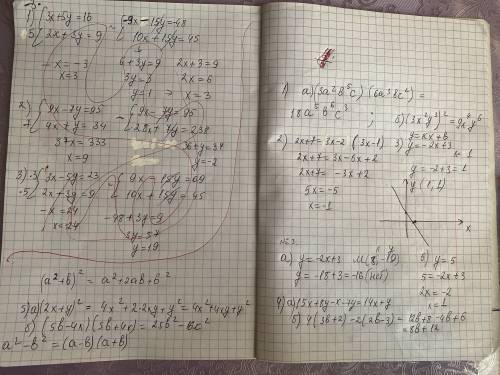 1) { 3x+5y=16
-3
5 { 2x+3y=9
~ { -9x-15y=-48
10x+15y=45
-x=-3
x=3
6+3y=9
3y=3
y=1
2x+3=9
2x=6
x=3
2) { 9x-7y=95
7 { 4x+y=34
~ { 9x-7y=95
28x+7y=238
37x=333
x=9
36+y=34
y=-2
3) ·3 { 3x-5y=23
·5 { 2x+3y=9
{ 9x-15y=69
10x+15y=45
-x=24
x=-24
-48+3y=9
3y=57
y=19
(a²+b)² = a²+2ab+b²
5) а) (2x+y)² = 4x²+2·2xy+y² = 4x²+4xy+y²
б) (5b-4x)(5b+4x) = 25b²-16x²
a²-b² = (a-b)(a+b)
1) а) (3a²b⁵c)(6a³bc²) =
18a⁵b⁶c³ ; б) (3x y³)² = 9x²y⁶
y=кx+b
2) 2x+7=3x-2(3x-1)
2x+7=3x-6x+2
2x+7=-3x+2
5x=-5
x=-1
3) y=-2x+3
x=1
y=-2+3=1
y (1,1)
x
а) y=-2x+3
y=-18+3=-16 (нет)
б) y=5
5=-2x+3
2x=-2
x=1
4) а) 15x+8y-x-7y=14x+y
б) 4(3b+2)-2(2b-3) = 12b+8-4b+6
=8b+12